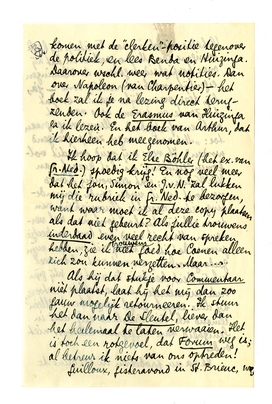 komen met de "clerken"-positie tegenover
de politiek, en lees Benda en Huizinga.
Daarover wschl. weer wat notities. Dan
over Napoleon (van Charpentier) – het
boek zal ik je na lezing direct terug-
zenden. Ook de Erasmus van Huizinga
ga ik lezen. En het boek van Arthur, dat
ik hierheen heb meegenomen.
Ik hoop dat ik Else Böhler (het ex. van
Gr. Ned.) spoedig krijg! En nog veel meer
dat het jou, Simon en J.v.N. zal lukken
mij die rubriek in Gr. Ned. te bezorgen,
want waar moet ik al deze copy plaatsen
als dat niet gebeurt? Als jullie trouwens
inderdaad even veel recht van spreken
hebben, zie ik niet goed hoe Coenen alleen
zich zou kunnen verzetten. Maar...
trouwens
Als hij dat stukje voor Commentaar
niet plaatst, laat hij het mij dan zoo
gauw mogelijk retourneeren. Ik stuur
het dan naar De Sleutel, liever dan
het heelemaal te laten verwaaien. Het
is toch een rotgevoel, dat Forum weg is;
al betreur ik niets van ons optreden!
Guilloux, gisteravond in St. Brieuc, was